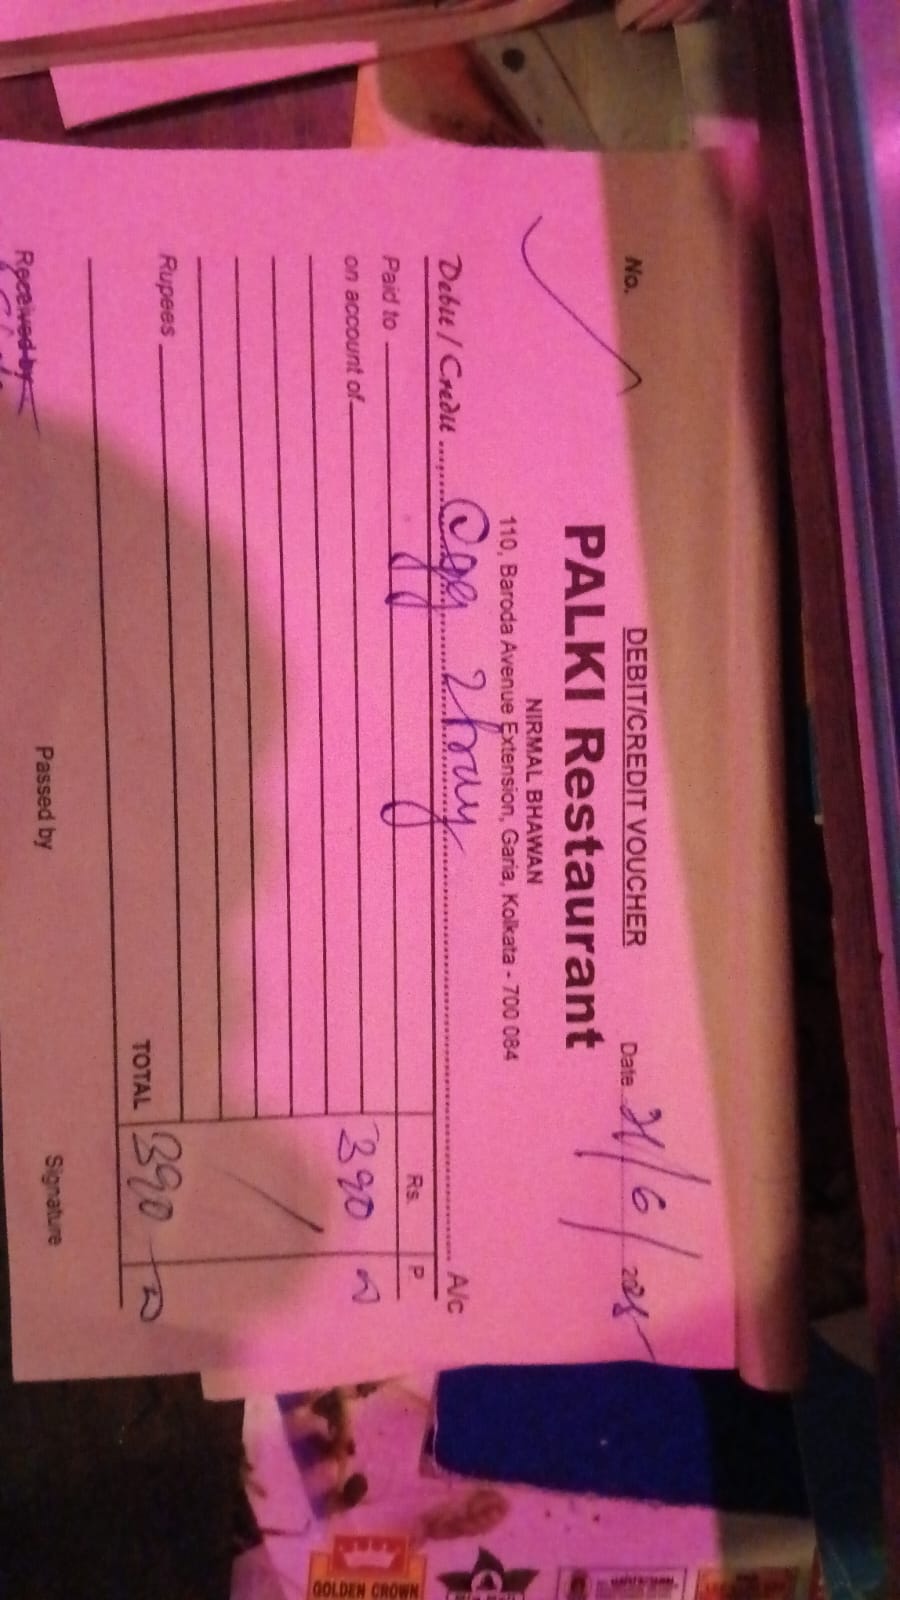 DEBIT/CREDIT VOUCHER
No.
Date 21/6/2025
PALKI Restaurant
NIRMAL BHAWAN
110, Baroda Avenue Extension, Garia, Kolkata - 700 084
Debit / Credit Egg 2 tray A/c
Paid to
Rs. P
on account of
390
Rupees
TOTAL 390
Received by
Passed by
Signature
GOLDEN CROWN